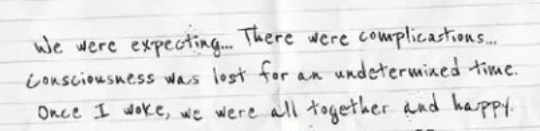 We were expecting... There were complications...
Consciousness was lost for an undetermined time.
Once I woke, we were all together and happy.